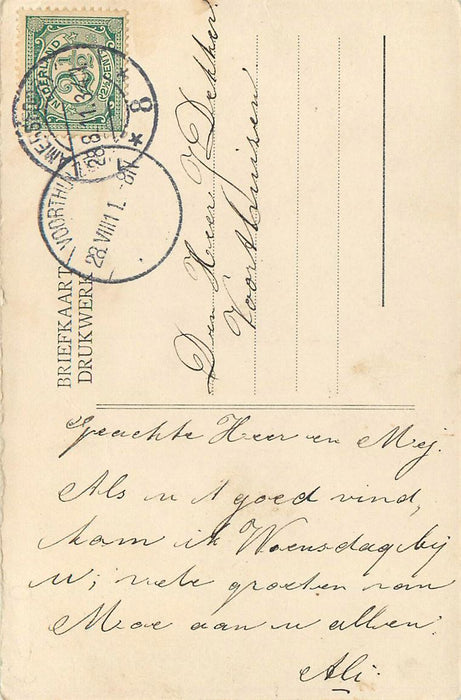 NEDERLAND
2½
CENT
AMERSFOORT
28.8.11.3
8
VOORTHUIZEN
28.VIII.11.-8N
BRIEFKAART
DRUKWERK
Den Heer J Dekker.
Voorthuisen
Geachte Heer en Mej.
Als u 't goed vind,
kom ik Woensdag bij
u; vele groeten van
Moe aan u allen.
Ali.